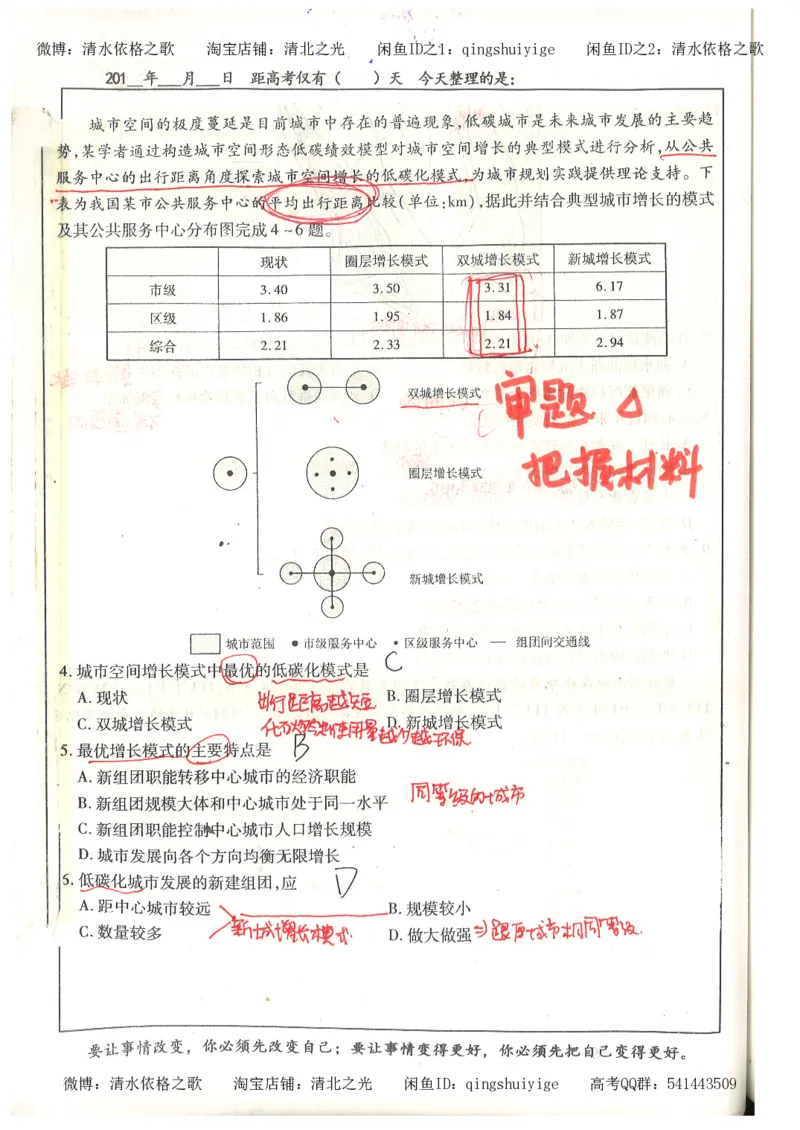 微博：清水依格之歌 淘宝店铺：清北之光 闲鱼ID之1：qingshuiyige 闲鱼ID之2：清水依格之歌
201__年___月___日 距高考仅有（ ）天 今天整理的是：
城市空间的极度蔓延是目前城市中存在的普遍现象,低碳城市是未来城市发展的主要趋
势,某学者通过构造城市空间形态低碳绩效模型对城市空间增长的典型模式进行分析,从公共
服务中心的出行距离角度探索城市空间增长的低碳化模式,为城市规划实践提供理论支持。下
表为我国某市公共服务中心的平均出行距离比较(单位:km),据此并结合典型城市增长的模式
及其公共服务中心分布图完成4~6题。
现状 圈层增长模式 双城增长模式 新城增长模式
市级 3.40 3.50 3.31 6.17
区级 1.86 1.95 1.84 1.87
综合 2.21 2.33 2.21 2.94
双城增长模式
审题
圈层增长模式
把握材料
新城增长模式
城市范围 市级服务中心 区级服务中心 组团间交通线
4. 城市空间增长模式中最优的低碳化模式是 C
A. 现状 B. 圈层增长模式
出行距离越短
C. 双城增长模式 D. 新城增长模式
化石燃料使用量越少越环保
5. 最优增长模式的主要特点是 B
A. 新组团职能转移中心城市的经济职能
B. 新组团规模大体和中心城市处于同一水平
同等级的城市
C. 新组团职能控制中心城市人口增长规模
D. 城市发展向各个方向均衡无限增长
6. 低碳化城市发展的新建组团,应 D
A. 距中心城市较远 B. 规模较小
C. 数量较多 新城增长模式 D. 做大做强 ⇒跟原城市相同等级.
要让事情改变，你必须先改变自己；要让事情变得更好，你必须先把自己变得更好。
微博：清水依格之歌 淘宝店铺：清北之光 闲鱼ID：qingshuiyige 高考QQ群：541443509